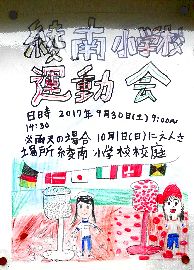 綾南小学校
運動会
日時 2017年9月30日(土)9:00〜
14:30
※雨天の場合 10月1日(日)にえんき
場所 綾南小学校校庭